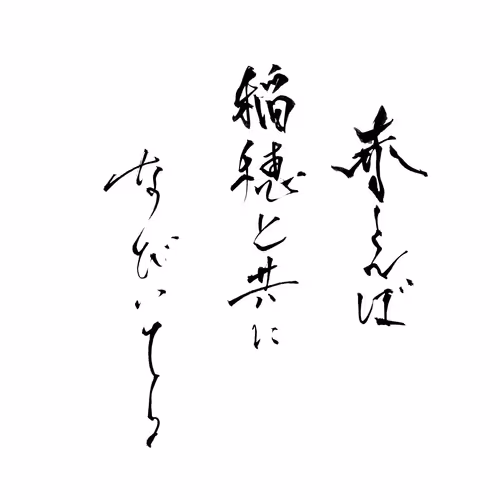 赤とんぼ
稲穂と共に
なびいてる